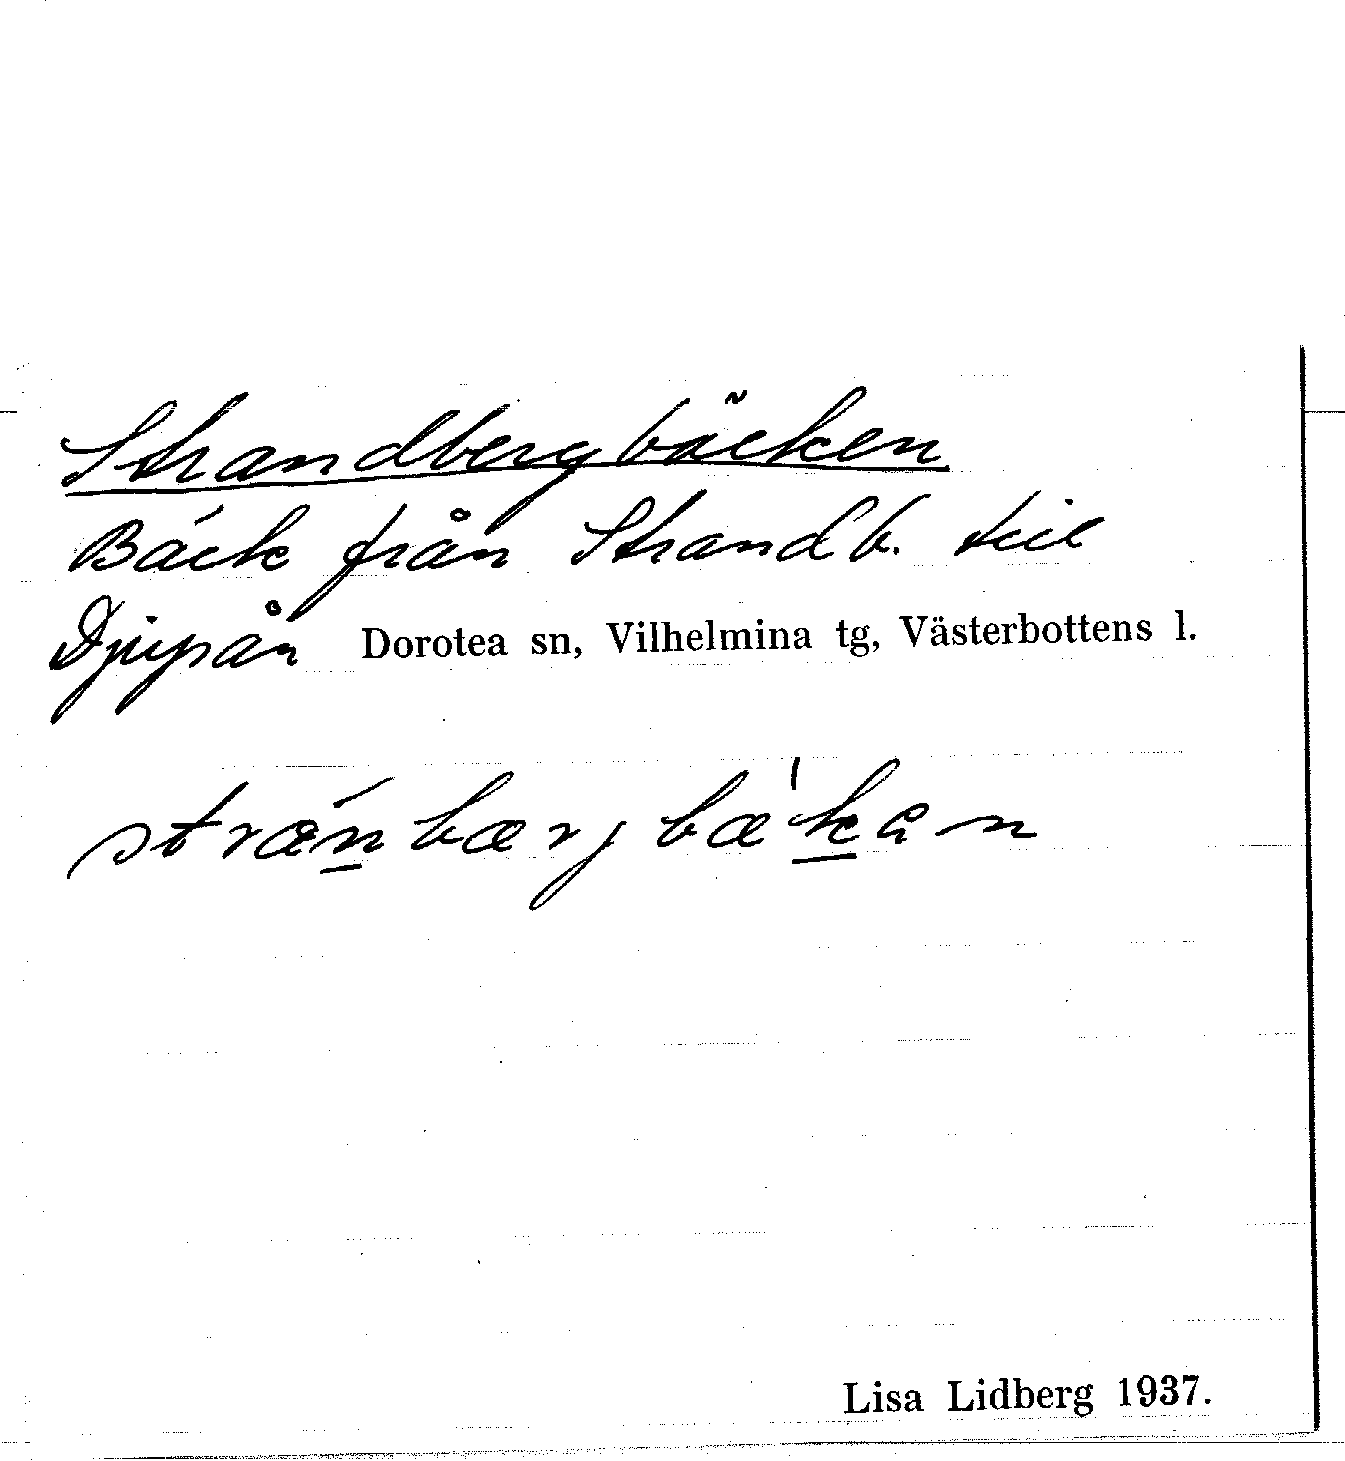 Strandbergbäcken
Bäck från Strandb. till
Djupån Dorotea sn, Vilhelmina tg, Västerbottens l.
stræ´n̲bærjbæ'k̲ån
Lisa Lidberg 1937.